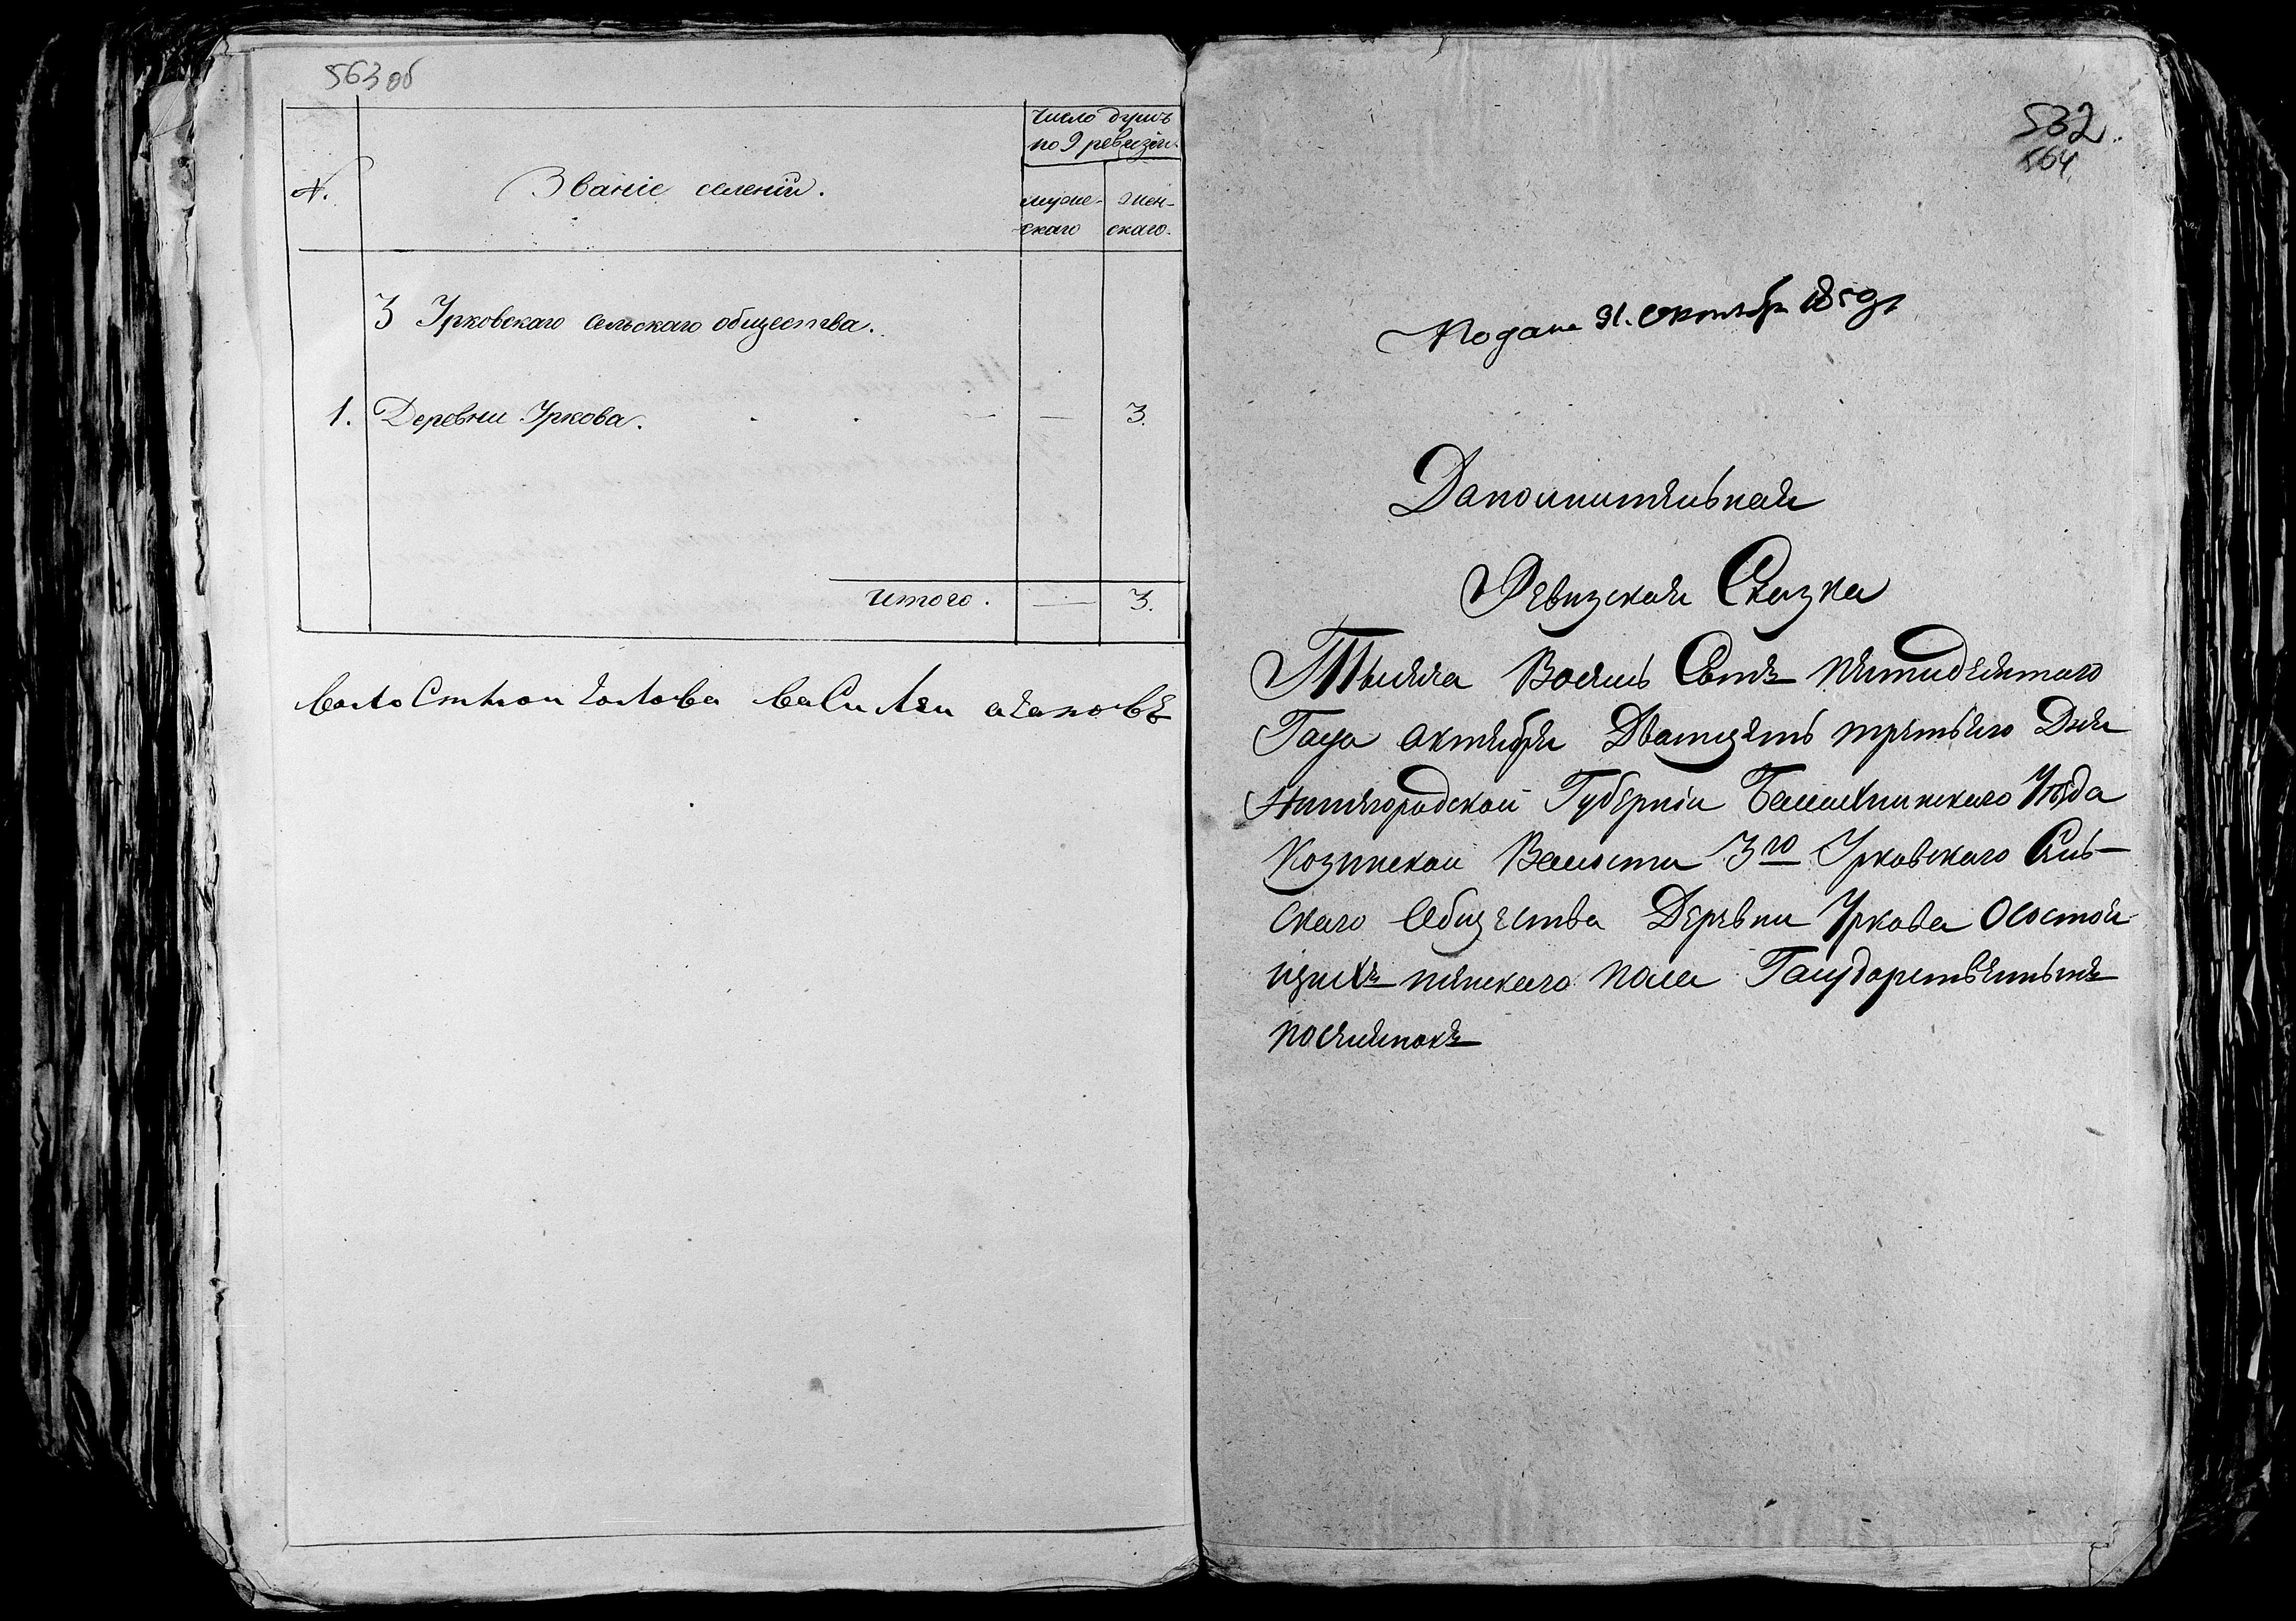 563 об
№.
Званіе селеній.
Число душъ
по 9 ревизіи.
муже-
скаго
жен-
скаго.
3 Урковскаго сельскаго общества.
1. Деревни Уркова. — 3.
Итого. — 3.
волостнои голова василеи агаповъ
532
564
Подана 31. Октября 1850 г
Дапольнительная
Ревизская Сказка
Тысяча Восемь Сотъ пятидесятаго
Года октября Дватцать третьяго Дня
Нижегородскои Губерніи Балахнинскаго Уѣзда
Козинскои Волости 3го Урковскаго Сель-
скаго Общества Деревни Уркова Осостоя-
щихъ женскаго пола Государственныхъ
поселянокъ